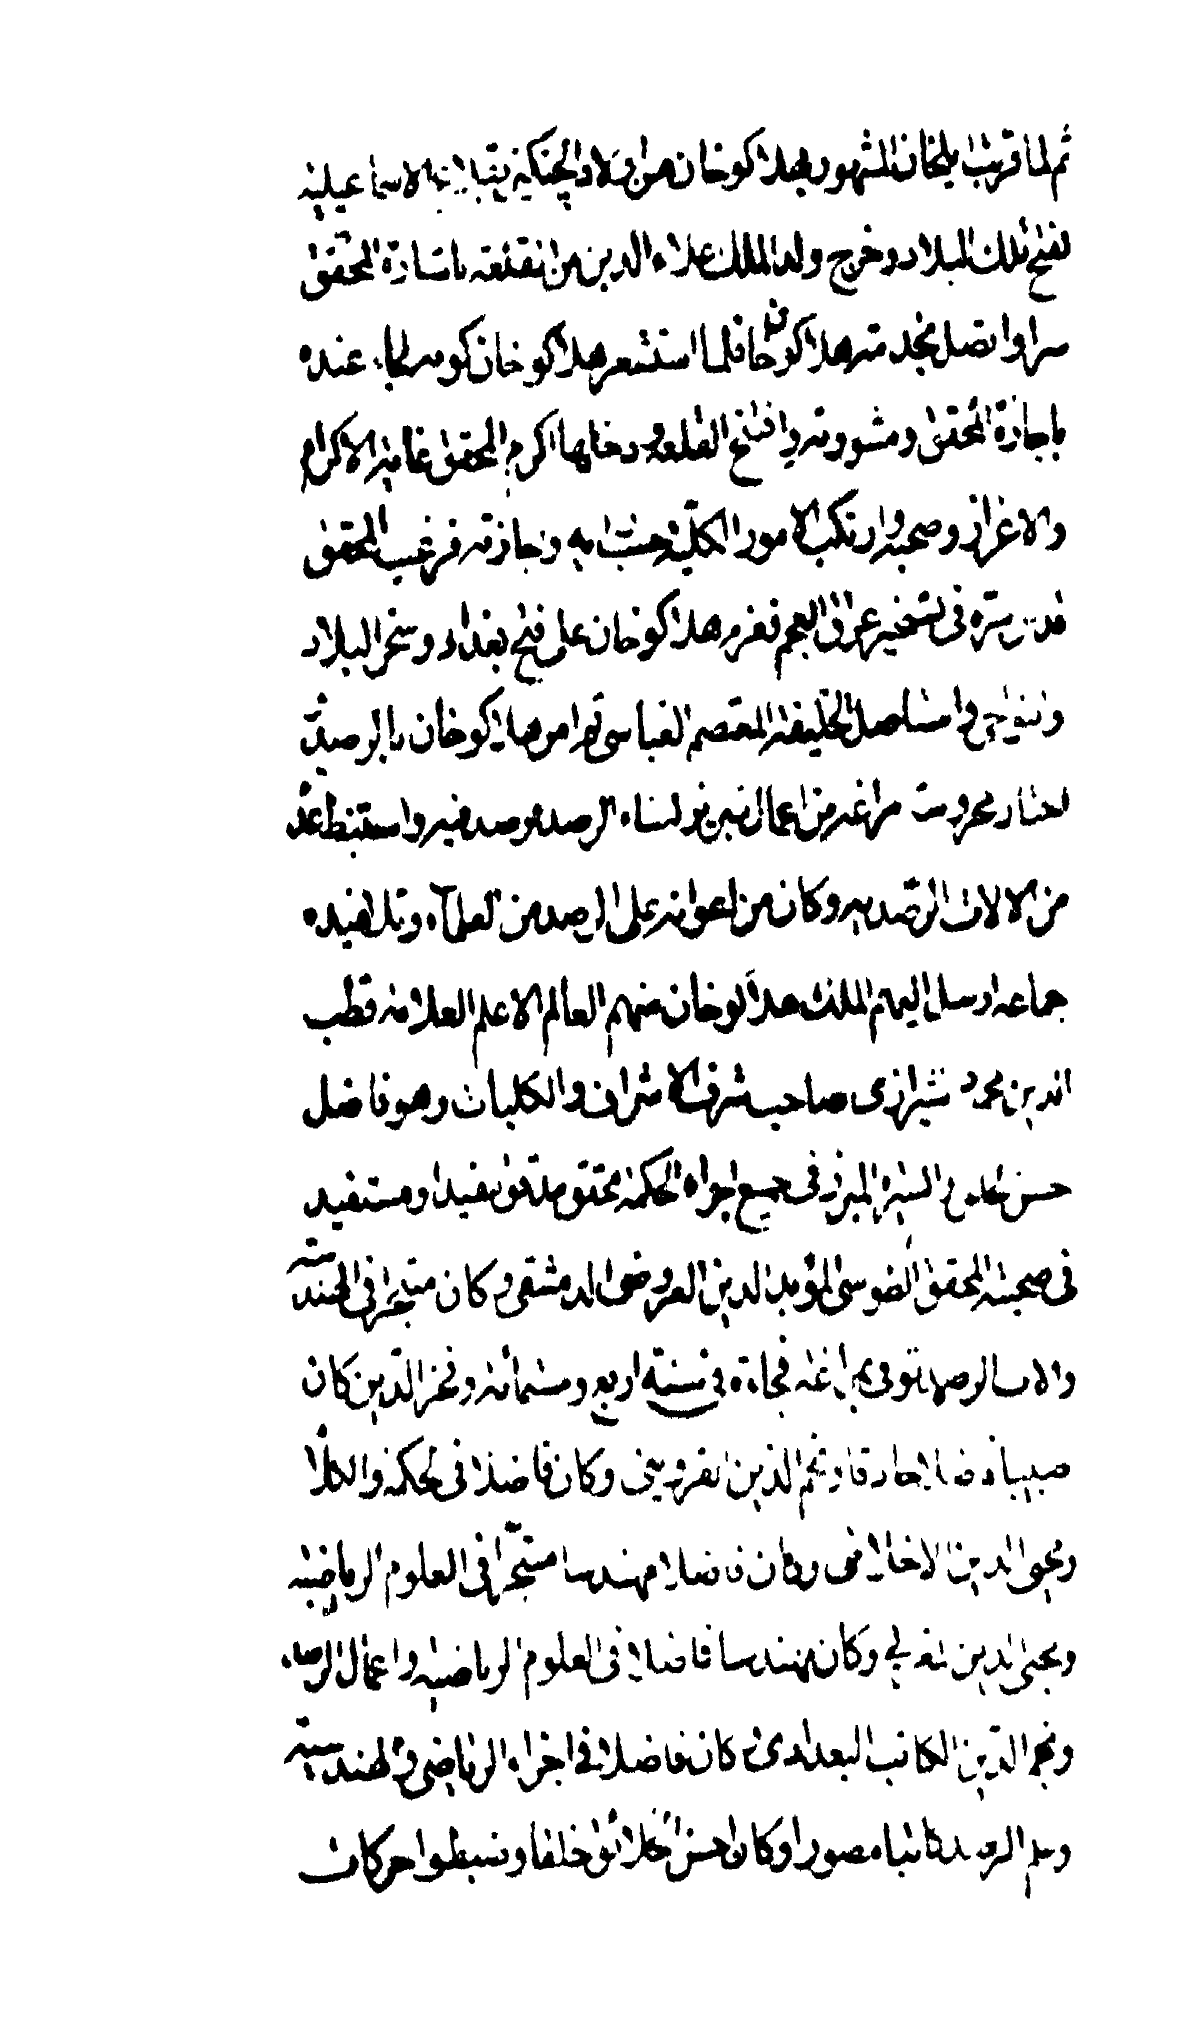 ثم لما قرب ايلخان المشهور بهلاكو خان من اولاد الچنكيز بقلاع الاسماعيلية
لفتح تلك البلاد وخرج ولد الملك علاء الدين من القلعة باشارة المحقق
سرا واتصل بخدمته هلاكو خان فلما استشعر هلاكو خان كونه لجاء عنده
باجازة المحقق ومشورته وافتتح القلعة ودخلها اكرم المحقق غاية الاكرام
والاعزاز وصحبه وارتكب الامور الكلية حسب رايه واجازته فرغب المحقق
قدس سره في تسخير عراق العجم فعزم هلاكو خان على فتح بغداد وسخر البلاد
والنواحي واستاصل الخليفة المعتصم العباسي ثم امر هلاكو خان بالرصد
اختار محروسة مراغه من اعمال تبريز لبناء الرصد فرصد فيه واستنبط عدة
من الالات الرصديه وكان من اعوانه على الرصد من العلماء وتلاميذه
جماعه ارسل اليهم الملك هلاكو خان منهم العالم الاعلم العلامه قطب
الدين محمود شيرازي صاحب شرف الاشراف والكليات وهو فاضل
حسن الخلق والسيره المبرز في جميع اجزاء الحكمة محقق مدقق مفيد او مستفيد
في صحبة المحقق الطوسي المؤيد الدين العروضي الدمشقي وكان متبحرا في الهندسة
والات الرصد توفي بمراغه فجاءة في سنة اربع وستمائة وفخر الدين كان
طبيبا فاضلا حاذقا ونجم الدين القزويني وكان فاضلا في الحكمة والكلام
ومحيى الدين الاخلاطى وكان فاضلا مهندسا متبحرا في العلوم الرياضيه
ومحيى الدين المغربي وكان مهندسا فاضلا في العلوم الرياضيه واعمال الرصد
ونجم الدين الكاتب البغدادى كان فاضلا في اجزاء الرياضي والهندسة
وعلم الرصد كاتبا مصورا وكان احسن الخلائق خلقا وضبطوا حركات